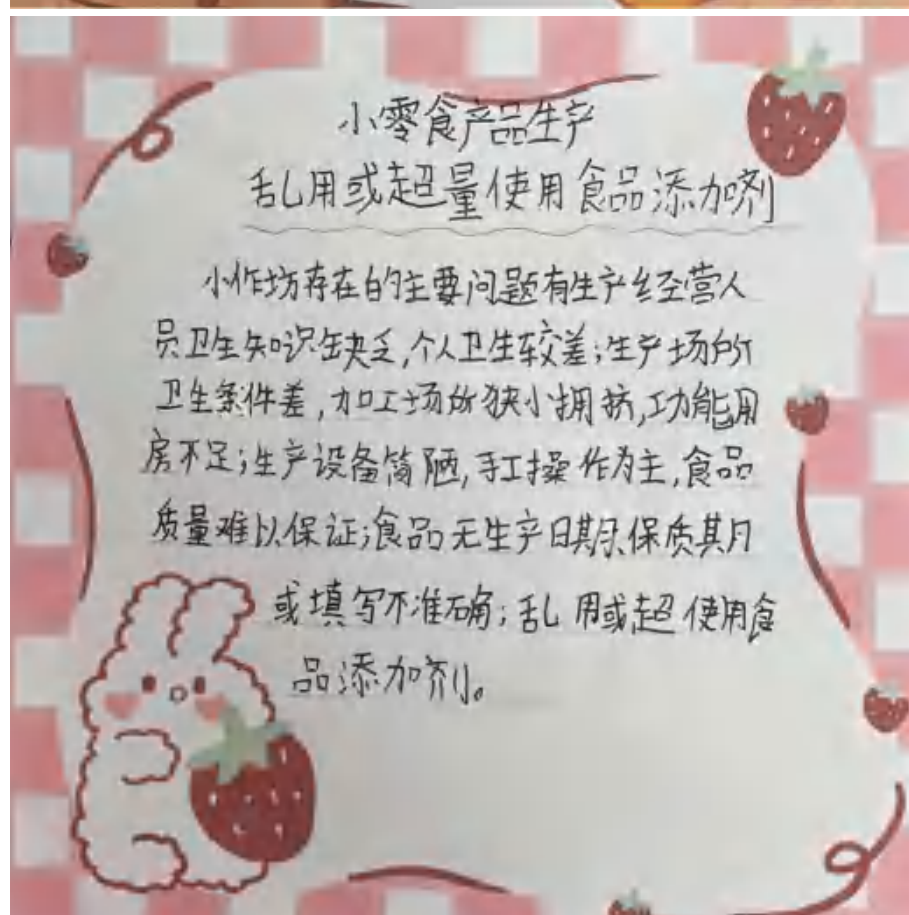 小零食产品生产
乱用或超量使用食品添加剂
小作坊存在的主要问题有生产经营人
员卫生知识缺乏,个人卫生较差;生产场所
卫生条件差,加工场所狭小拥挤,功能用
房不足;生产设备简陋,手工操作为主,食品
质量难以保证;食品无生产日期、保质期
或填写不准确;乱用或超使用食
品添加剂。